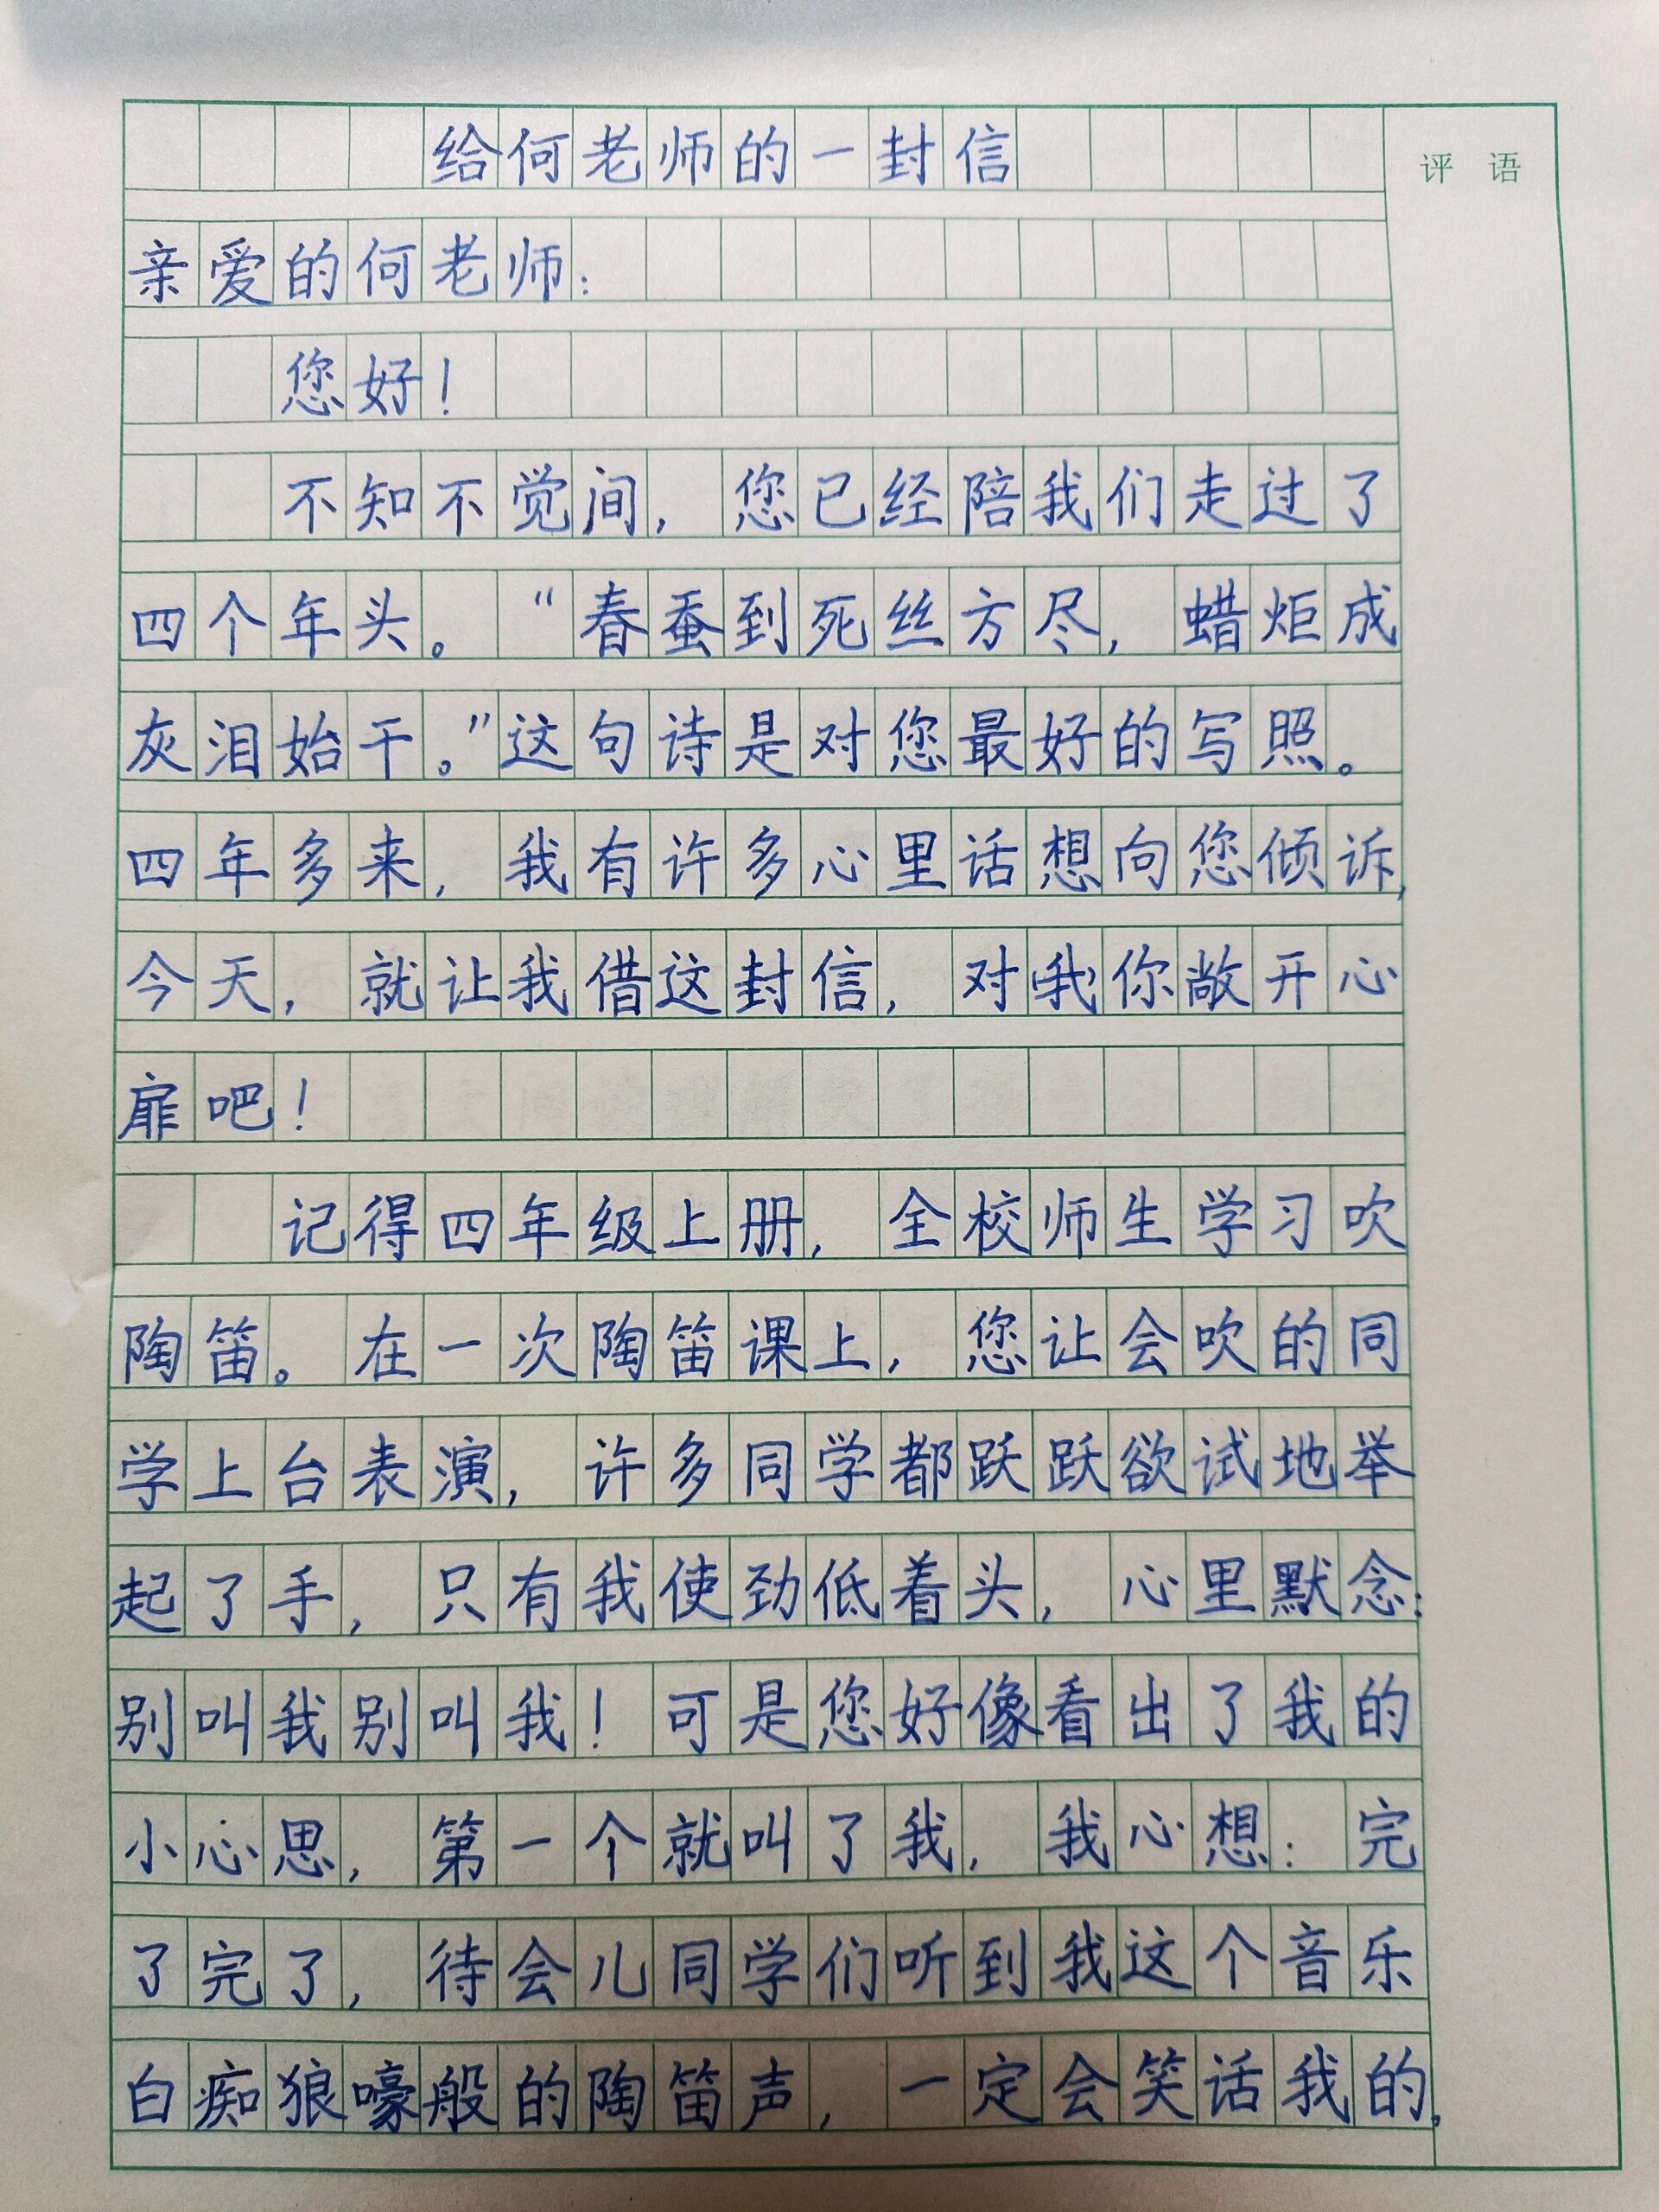 给何老师的一封信
评语
亲爱的何老师：
您好！
不知不觉间，您已经陪我们走过了
四个年头。“春蚕到死丝方尽，蜡炬成
灰泪始干。”这句诗是对您最好的写照。
四年多来，我有许多心里话想向您倾诉，
今天，就让我借这封信，对我你敞开心
扉吧！
记得四年级上册，全校师生学习吹
陶笛。在一次陶笛课上，您让会吹的同
学上台表演，许多同学都跃跃欲试地举
起了手，只有我使劲低着头，心里默念：
别叫我别叫我！可是您好像看出了我的
小心思，第一个就叫了我，我心想：完
了完了，待会儿同学们听到我这个音乐
白痴狼嚎般的陶笛声，一定会笑话我的，